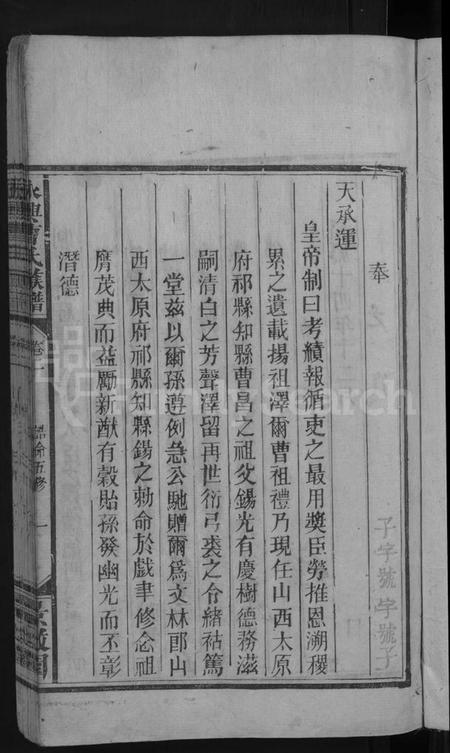 奉
天承運
皇帝制曰考績報循吏之最用獎臣勞推恩溯積
累之遺載揚祖澤爾曹祖禮乃現任山西太原
府祁縣知縣曹昌之祖父錫光有慶樹德務滋
嗣清白之芳聲澤留再世衍弓裘之令緒祜篤
一堂茲以爾孫遵例急公馳贈爾為文林郎山
西太原府祁縣知縣錫之勅命於戲聿修念祖
膺茂典而益勵新猷有穀貽孫發幽光而丕彰
潛德
興曹氏族譜
卷
五修
一